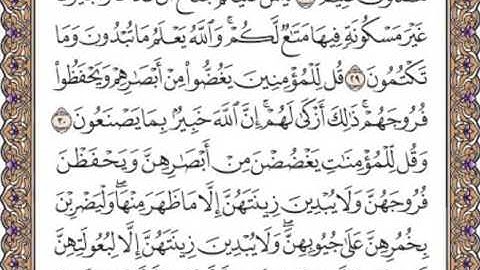 غَيْرَ مَسْكُونَةٍ فِيهَا مَتَٰعٌ لَّكُمْ ۚ وَٱللَّهُ يَعْلَمُ مَا تُبْدُونَ وَمَا
تَكْتُمُونَ ٢٩ قُل لِّلْمُؤْمِنِينَ يَغُضُّوا۟ مِنْ أَبْصَٰرِهِمْ وَيَحْفَظُوا۟
فُرُوجَهُمْ ۚ ذَٰلِكَ أَزْكَىٰ لَهُمْ ۗ إِنَّ ٱللَّهَ خَبِيرٌۢ بِمَا يَصْنَعُونَ ٣٠
وَقُل لِّلْمُؤْمِنَٰتِ يَغْضُضْنَ مِنْ أَبْصَٰرِهِنَّ وَيَحْفَظْنَ
فُرُوجَهُنَّ وَلَا يُبْدِينَ زِينَتَهُنَّ إِلَّا مَا ظَهَرَ مِنْهَا ۖ وَلْيَضْرِبْنَ
بِخُمُرِهِنَّ عَلَىٰ جُيُوبِهِنَّ ۖ وَلَا يُبْدِينَ زِينَتَهُنَّ إِلَّا لِبُعُولَتِهِنَّ